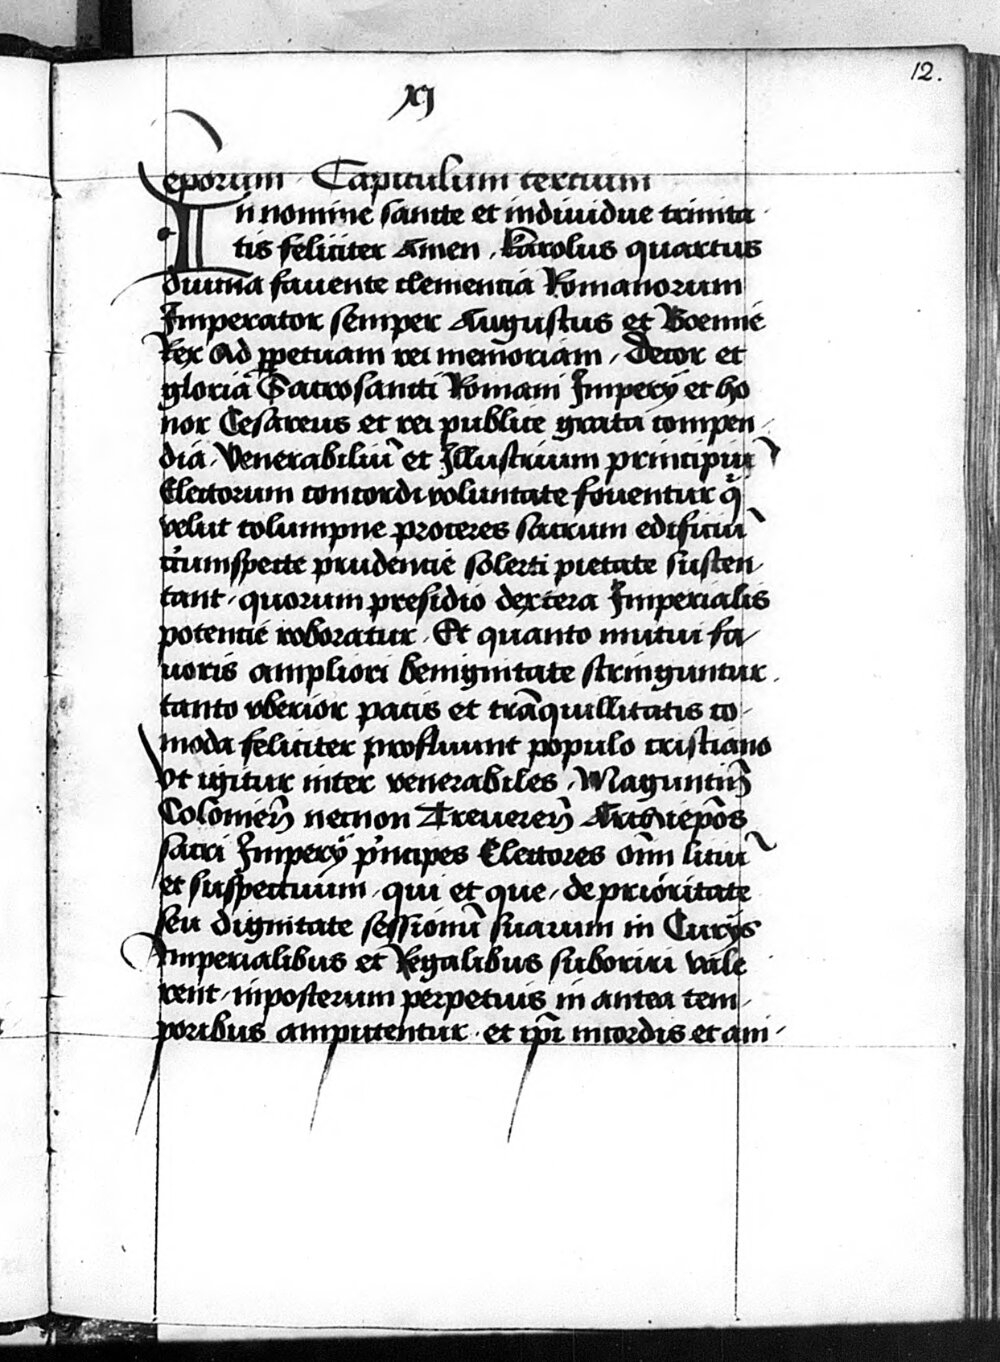 12.
XJ
eporum Capitulum tertium
In nomine sancte et indiuidue trinita
tis feliciter Amen. Karolus quartus
diuina fauente clemencia Romanorum
Imperator semper Augustus et Boemie
Rex Ad ꝑpetuam rei memoriam / Decor et
gloria Sacrosancti Romani Imperÿ et ho
nor Cesareus et rei publice grata compen
dia / Venerabiliū et Illustrium principū
Electorum concordi voluntate fouentur q̄
velut columpne proceres sacrum edificiū
c̓cumspecte prudencie solerti pietate susten
tant / quorum presidio dextera Imperialis
potencie roboratur. Et quanto mutui fa
uoris ampliori benignitate stringuntur.
tanto vberior pacis et trāquillitatis co
moda feliciter profluunt populo cristiano
Vt igitur inter venerabiles / Maguntin̄
Colonien̄ necnon Treueren̄ Archiep̄os
sacri Imperÿ p̓ncipes Electores om̄i litiū
et suspectuum / qui et que / de prioritate
seu dignitate sessionū suarum in Curÿs
Imperialibus et Regalibus suboriri vale
rent / inposterum perpetuis in antea tem
poribus amputentur. et ip̄i incordis et ani